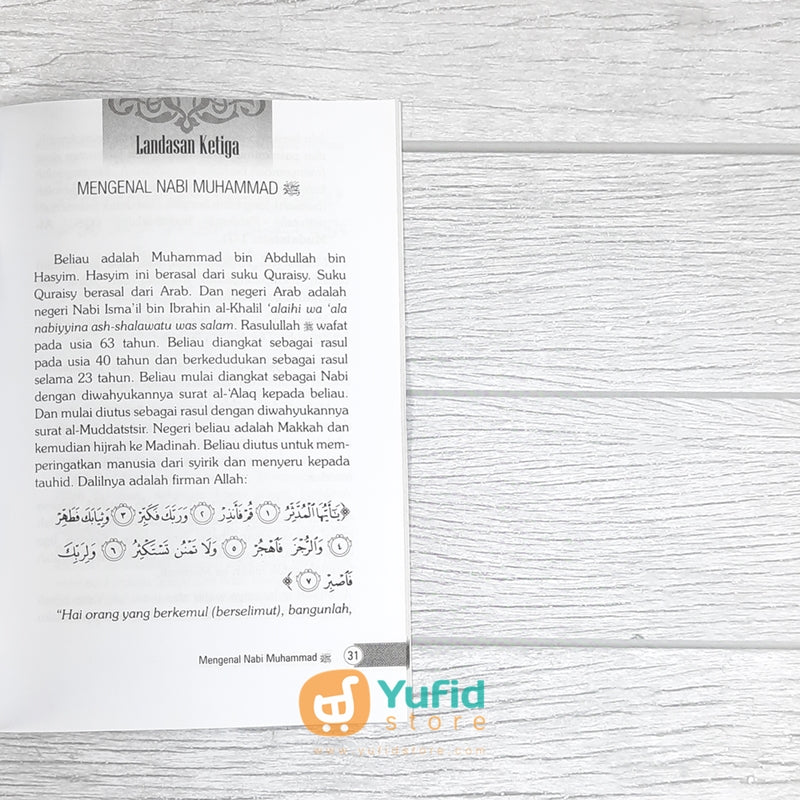 Landasan Ketiga
MENGENAL NABI MUHAMMAD ﷺ
Beliau adalah Muhammad bin Abdullah bin
Hasyim. Hasyim ini berasal dari suku Quraisy. Suku
Quraisy berasal dari Arab. Dan negeri Arab adalah
negeri Nabi Isma'il bin Ibrahin al-Khalil 'alaihi wa 'ala
nabiyyina ash-shalawatu was salam. Rasulullah ﷺ wafat
pada usia 63 tahun. Beliau diangkat sebagai rasul
pada usia 40 tahun dan berkedudukan sebagai rasul
selama 23 tahun. Beliau mulai diangkat sebagai Nabi
dengan diwahyukannya surat al-'Alaq kepada beliau.
Dan mulai diutus sebagai rasul dengan diwahyukannya
surat al-Muddatstsir. Negeri beliau adalah Makkah dan
kemudian hijrah ke Madinah. Beliau diutus untuk mem-
peringatkan manusia dari syirik dan menyeru kepada
tauhid. Dalilnya adalah firman Allah:
﴿ يَٰٓأَيُّهَا ٱلْمُدَّثِّرُ ١ قُمْ فَأَنذِرْ ٢ وَرَبَّكَ فَكَبِّرْ ٣ وَثِيَابَكَ فَطَهِّرْ
٤ وَٱلرُّجْزَ فَٱهْجُرْ ٥ وَلَا تَمْنُن تَسْتَكْثِرُ ٦ وَلِرَبِّكَ
فَٱصْبِرْ ٧ ﴾
"Hai orang yang berkemul (berselimut), bangunlah,
Mengenal Nabi Muhammad ﷺ 31
Yufid
store
www.yufidstore.com